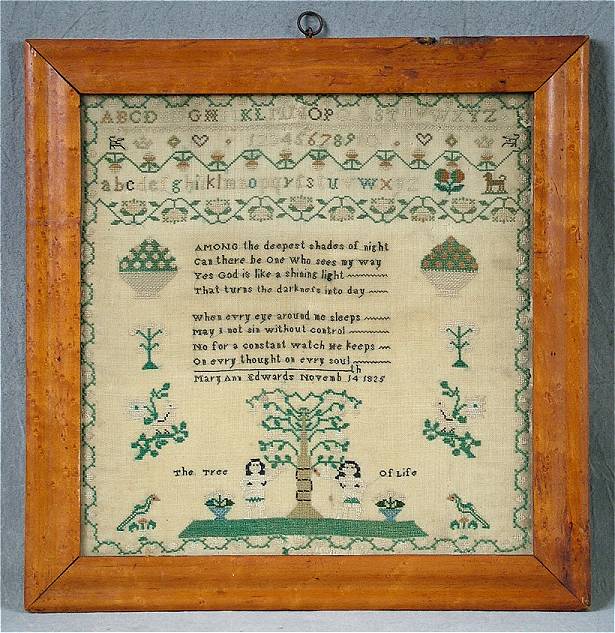 ABCD GH KL OP ST WXYZ
456789
abcdefghiklm opqrsstu wxyz
AMONG the deepest shades of night
Can there be One Who sees my way
Yes God is like a shining light
That turns the darkneſs into day
When evry eye around me sleeps
May I not sin without control
No for a constant watch He keeps
On evry thought on evry soul
Mary Ann Edwards Novemb 14th 1825
The Tree Of Life